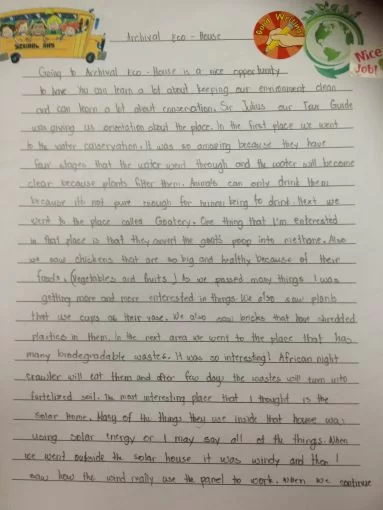 SCHOOL BUS
Archival Eco - House
Good Writing
Nice
Job!
Going to Archival Eco - House is a nice opportunity
to have. You can learn a lot about keeping our environment clean
and can learn a lot about conservation. Sir Julius our Tour Guide
was giving us orientation about the place. In the first place we went
to the water conservation. It was so amazing because they have
four stages that the water went through and the water will become
clear because plants filter them. Animals can only drink them
because it's not pure enough for human being to drink. Next we
went to the place called Goatery. One thing that I'm enterested
in that place is that they convert the goat's poop into methane. Also
we saw chickens that are so big and healthy because of their
foods. (vegetables and fruits) As we passed many things I was
getting more and more enterested in things. We also saw plants
that use cups as their vase. We also saw bricks that have shredded
plastics in them. In the next area we went to the place that has
many biodegradable wastes. It was so interesting! African night
crawler will eat them and after few days the wastes will turn into
fertelized soil. The most interesting place that I thought is the
solar home. Many of the things they use inside that house was
using solar energy or I may say all of the things. When
we went outside the solar house it was windy and then I
saw how the wind really use the panel to work. When we continue